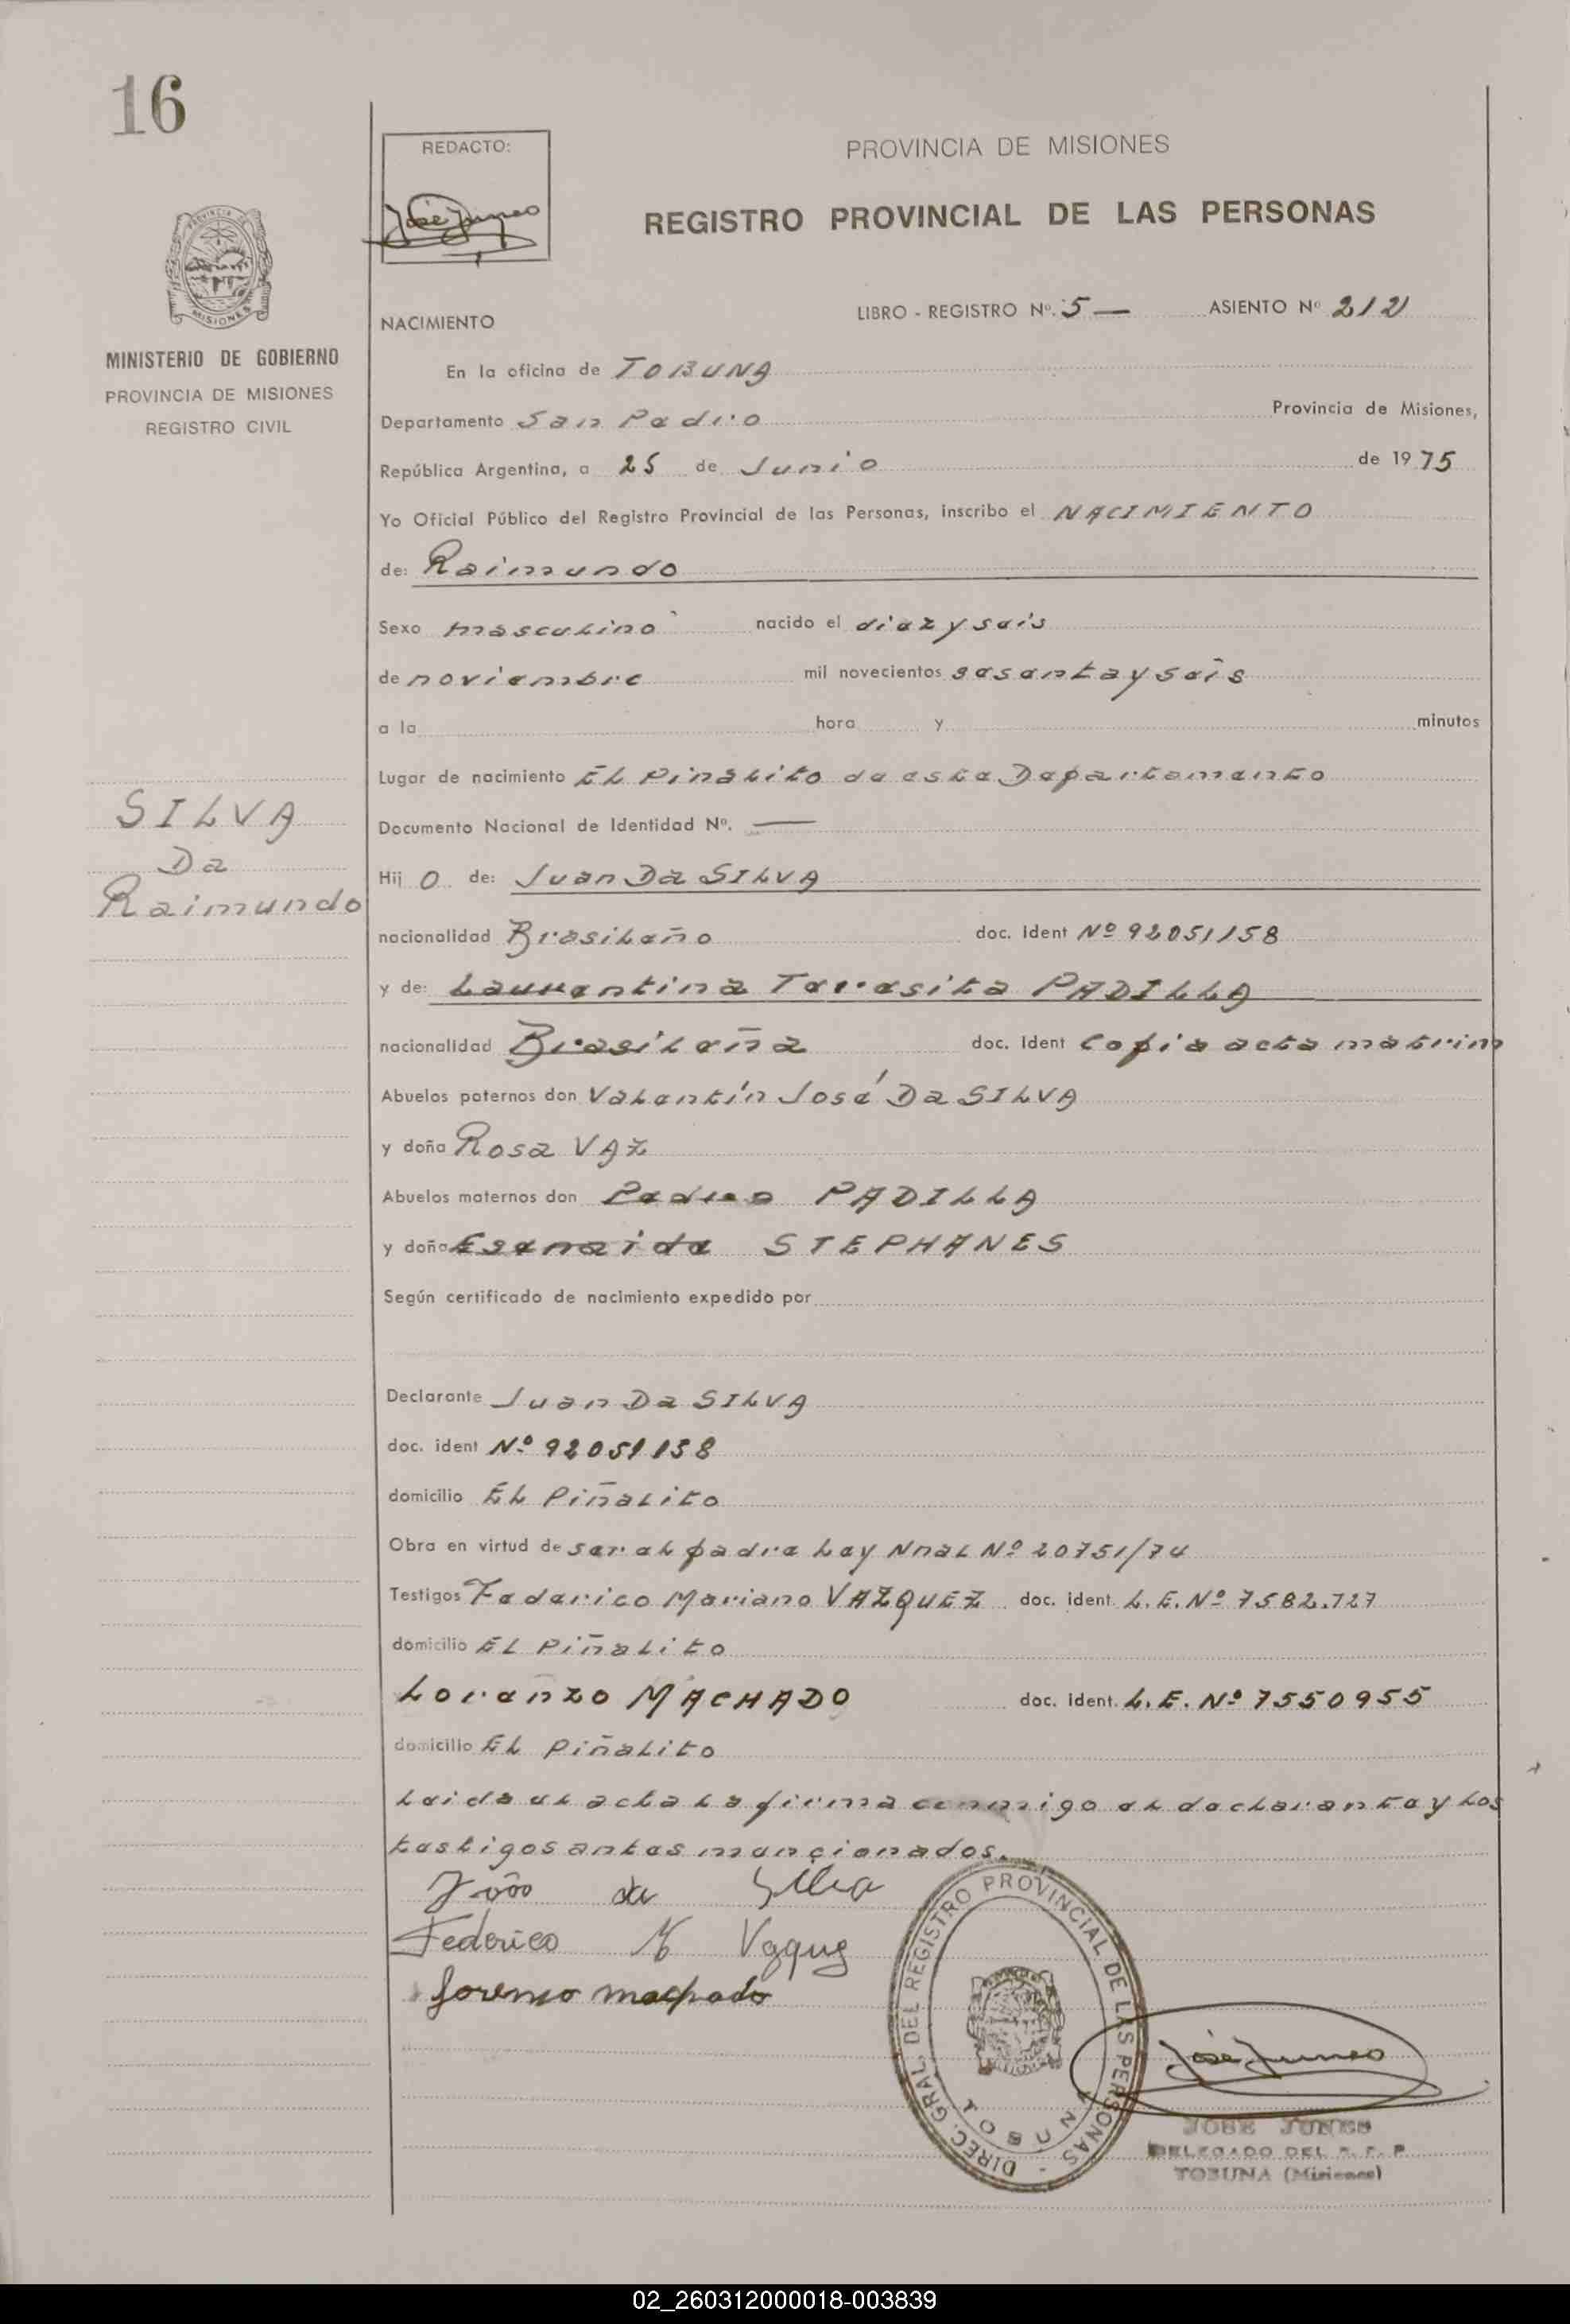 16
REDACTO:
PROVINCIA DE MISIONES
REGISTRO PROVINCIAL DE LAS PERSONAS
MINISTERIO DE GOBIERNO
PROVINCIA DE MISIONES
REGISTRO CIVIL
NACIMIENTO
LIBRO - REGISTRO Nº. 5 — ASIENTO Nº 212
En la oficina de TOBUNA
Departamento San Pedro Provincia de Misiones,
República Argentina, a 25 de Junio de 1975
Yo Oficial Público del Registro Provincial de las Personas, inscribo el NACIMIENTO
de: Raimundo
Sexo masculino nacido el diez y seis
de noviembre mil novecientos sesenta y seis
a la hora y minutos
Lugar de nacimiento El Piñalito de este Departamento
SILVA
Da
Raimundo
Documento Nacional de Identidad Nº. —
Hij o de: Juan Da SILVA
nacionalidad Brasileño doc. Ident Nº 92051158
y de: Teresita PADILLA
nacionalidad Brasileña doc. Ident Copia acta matrim
Abuelos paternos don Valentín José Da SILVA
y doña Rosa VAZ
Abuelos maternos don Pedro PADILLA
y doña STEPHANES
Según certificado de nacimiento expedido por
Declarante Juan Da SILVA
doc. ident Nº 92051158
domicilio El Piñalito
Obra en virtud de ser el padre Ley Nnal Nº 20751/74
Testigos Federico Mariano VAZQUEZ doc. ident. L.E. Nº 7582.727
domicilio El Piñalito
Lorenzo MACHADO doc. ident. L.E. Nº 7550955
domicilio El Piñalito
Leida el acta la firma conmigo el declarante y los
testigos antes mencionados.
João da Silva
Federico M Vazquez
Lorenso machado
DIREC. GRAL. DEL REGISTRO PROVINCIAL DE LAS PERSONAS -
TOBUNA
JOSE JUNES
DELEGADO DEL R. P. P.
TOBUNA (Misiones)
02_260312000018-003839